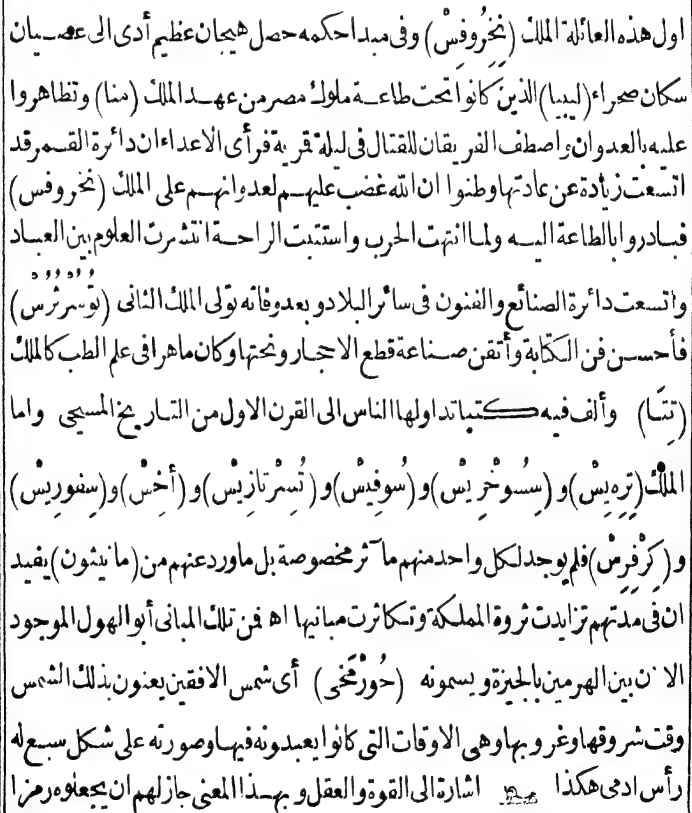 اول هذه العائلة الملك (نِخِرُوفِسْ) وفى مبدا حكمه حصل هيجان عظيم أدى الى عصيان
سكان صحراء (ليبيا) الذين كانوا تحت طاعة ملوك مصر من عهد الملك (منا) وتظاهروا
عليه بالعدوان واصطف الفريقان للقتال فى ليلة قمرية فرأى الاعداء ان دائرة القمر قد
اتسعت زيادة عن عادتها وظنوا ان الله غضب عليهم لعدوانهم على الملك (نخروفس)
فبادروا بالطاعة اليه ولما انتهت الحرب واستتبت الراحة انتشرت العلوم بين العباد
واتسعت دائرة الصنائع والفنون فى سائر البلاد وبعد وفاته تولى الملك الثانى (تُوسُرْثُرُسْ)
فأحسن فن الكتابة وأتقن صناعة قطع الاحجار ونحتها وكان ماهرا فى علم الطب كالملك
(تِتَا) وألف فيه كتبا تداولها الناس الى القرن الاول من التاريخ المسيحى واما
الملك (تِرِهِيسْ) و (سِسُوخْرِيسْ) و (سُوفِيسْ) و (تُسِرْتازِيسْ) و (أَخِسْ) و (سِفورِيسْ)
و (كِرْفِرِسْ) فلم يوجد لكل واحد منهم مآثر مخصوصة بل ما ورد عنهم من (مانيثون) يفيد
ان فى مدتهم تزايدت ثروة المملكة وتكاثرت مبانيها اه فمن تلك المبانى أبو الهول الموجود
الآن بين الهرمين بالجيزة ويسمونه (حُورْمَخِى) أى شمس الافقين يعنون بذلك الشمس
وقت شروقها وغروبها وهى الاوقات التى كانوا يعبدونه فيها وصورته على شكل سبع له
رأس ادمى هكذا اشارة الى القوة والعقل وبهذا المعنى جاز لهم ان يجعلوه رمزا